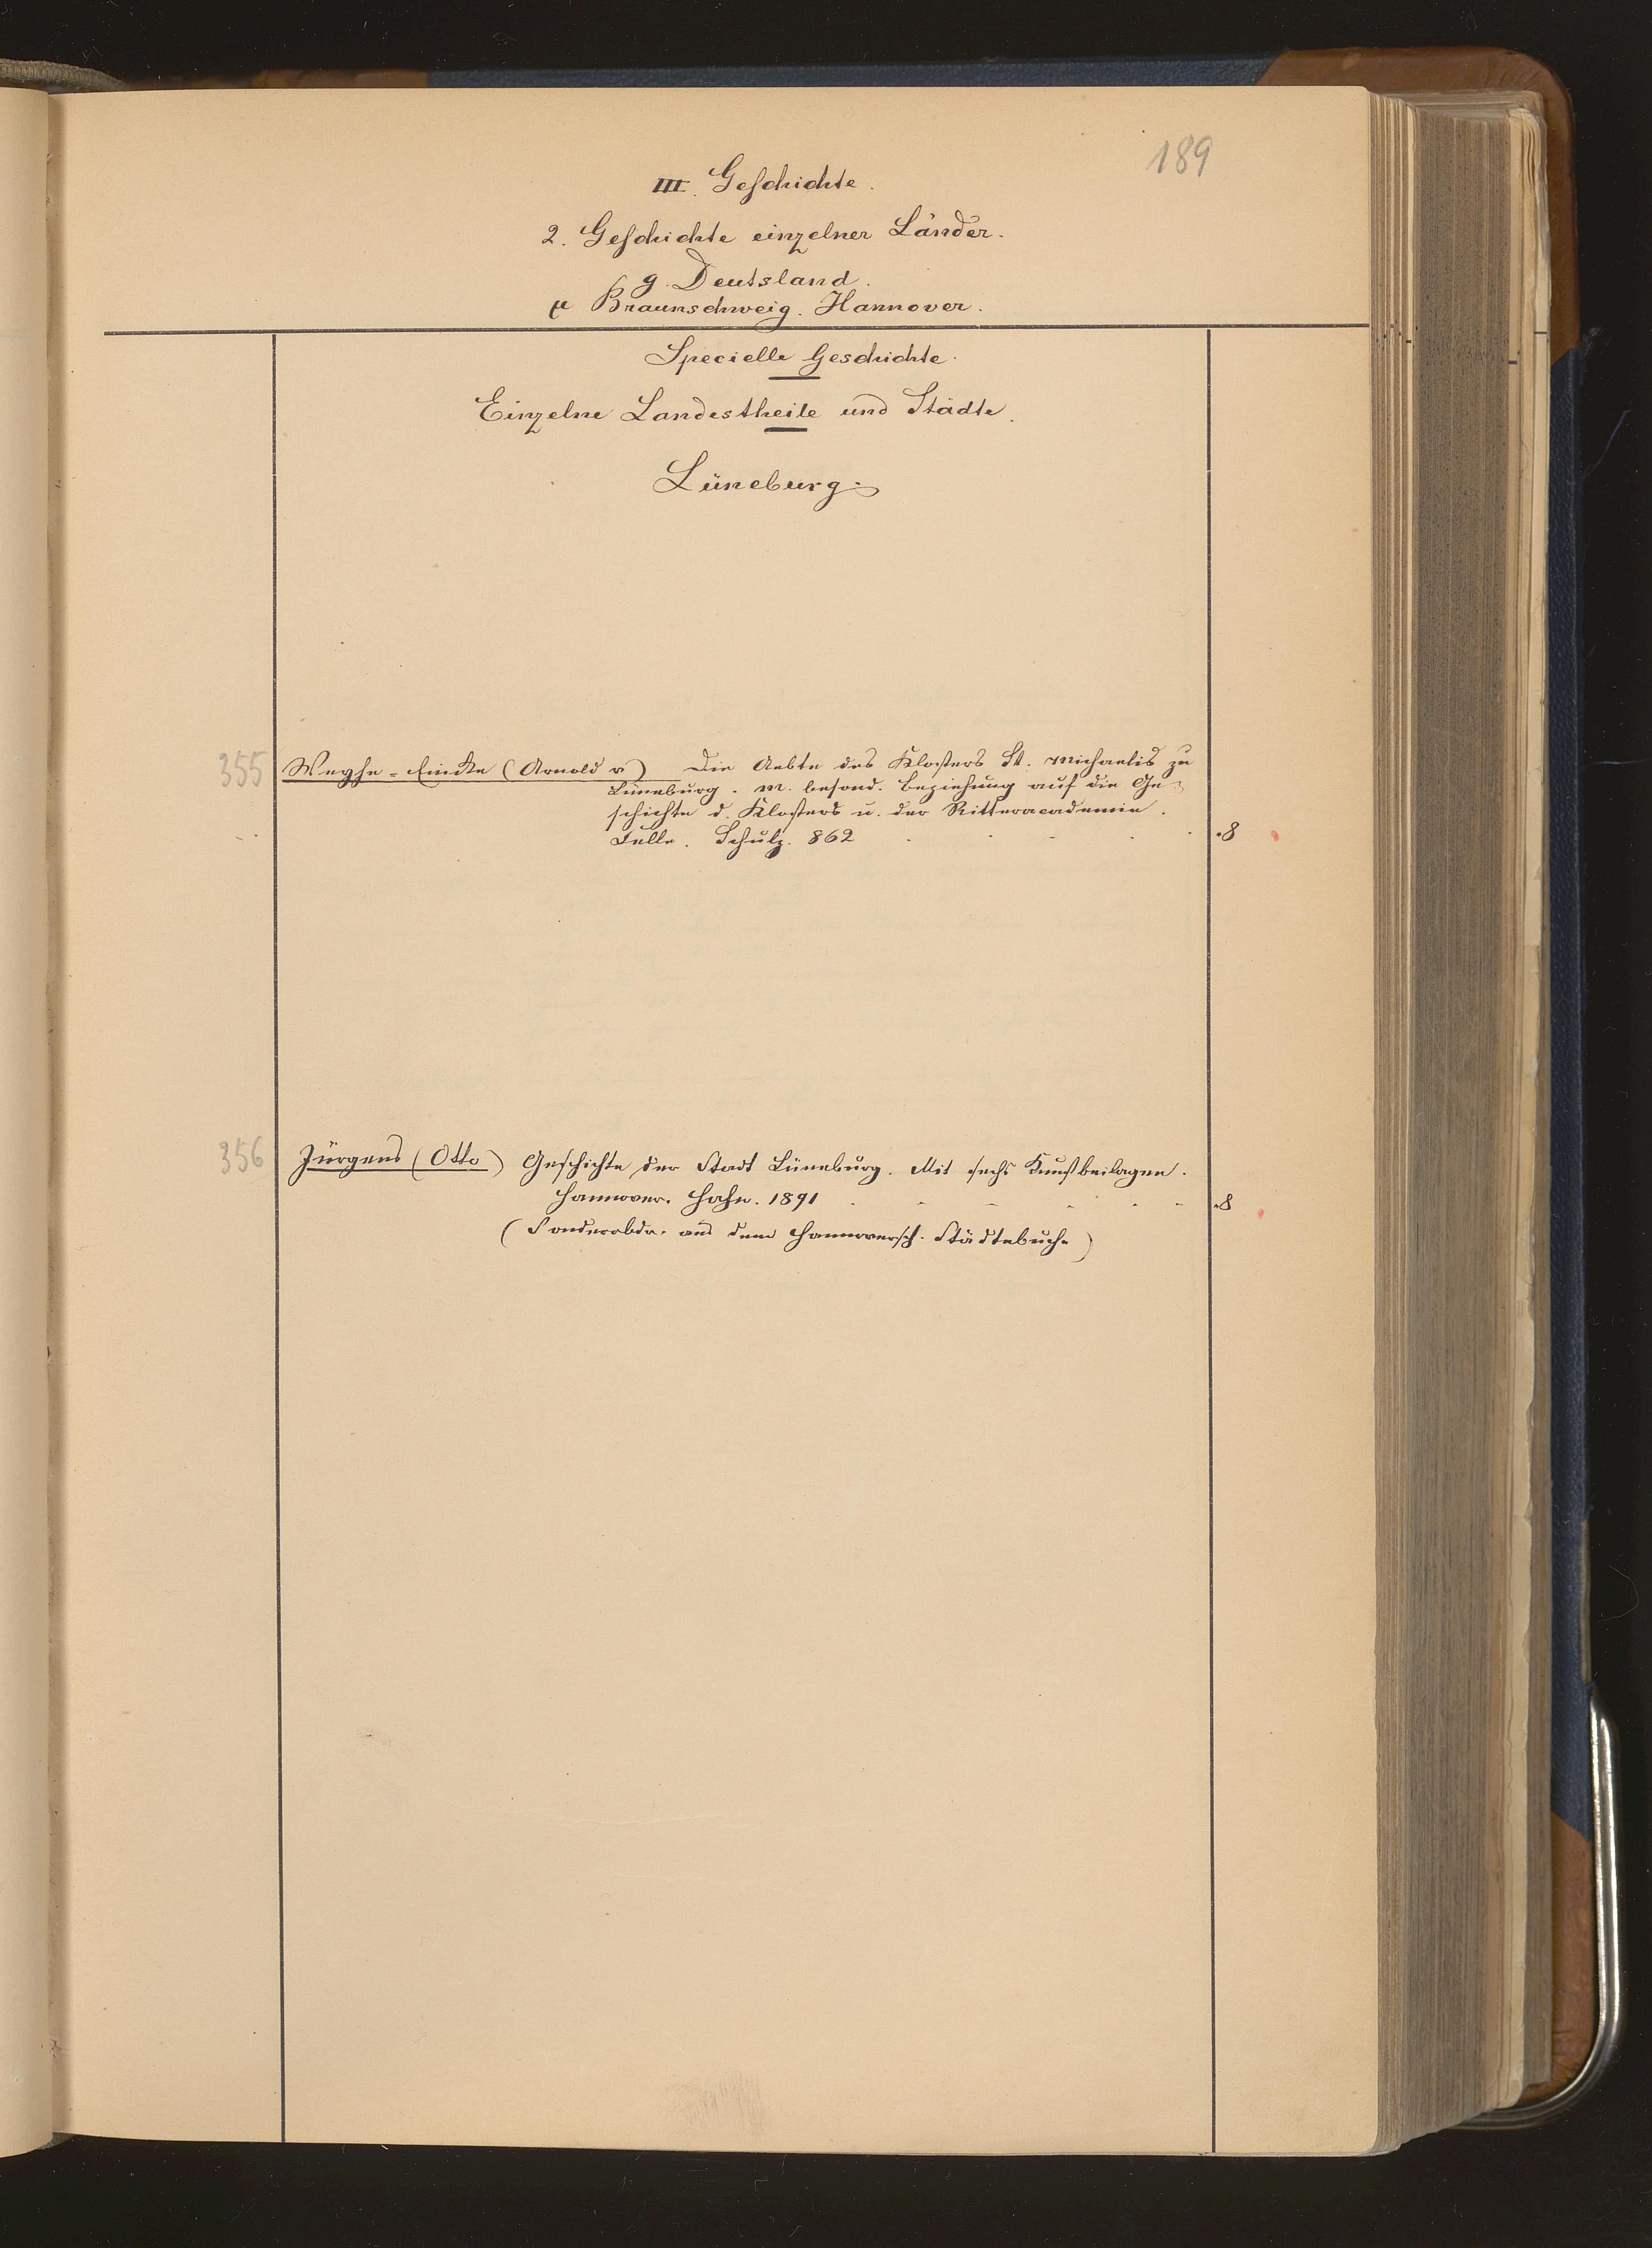 189
III. Geschichte.
2. Geschichte einzelner Länder.
g. Deutsland.
μ Braunschweig. Hannover.
Specielle Geschichte.
Einzelne Landestheile und Städte.
Lüneburg.
355 Weyhe-Eimke (Arnold v) Die Aebte des Klosters St. Michaelis zu
Lüneburg. M. besond. Beziehung auf die Ge-
schichte d. Klosters u. der Ritteracademie.
Celle. Schulz. 862 . . . . . 8
356 Jürgens (Otto) Geschichte der Stadt Lüneburg. Mit sechs Kunstbeilagen.
Hannover. Hahn. 1891 . . . . . . 8
(Sonderabdr. aus dem Hannoversch. Städtebuche)